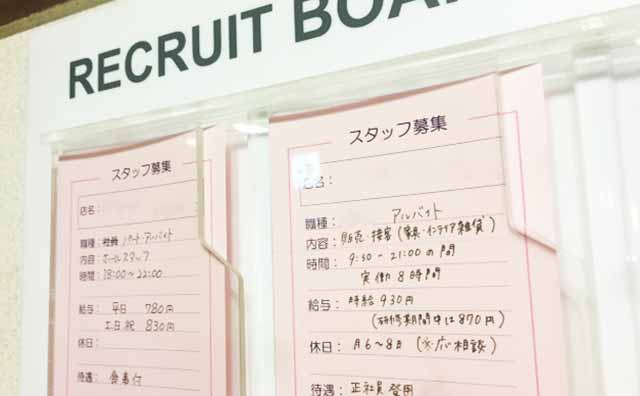 RECRUIT BOA
スタッフ募集
店名：
職種： 社員 パート・アルバイト
内容： ホールスタッフ
時間： 18:00〜22:00
給与： 平日 780円
土日祝 830円
休日：
待遇： 食事付
スタッフ募集
店名：
職種： アルバイト
内容： 販売 接客（家具・インテリア雑貨）
時間： 9:30〜21:00の間
実働8時間
給与： 時給930円
（研修期間中は870円）
休日： 月6〜8日（※応相談）
待遇： 正社員登用